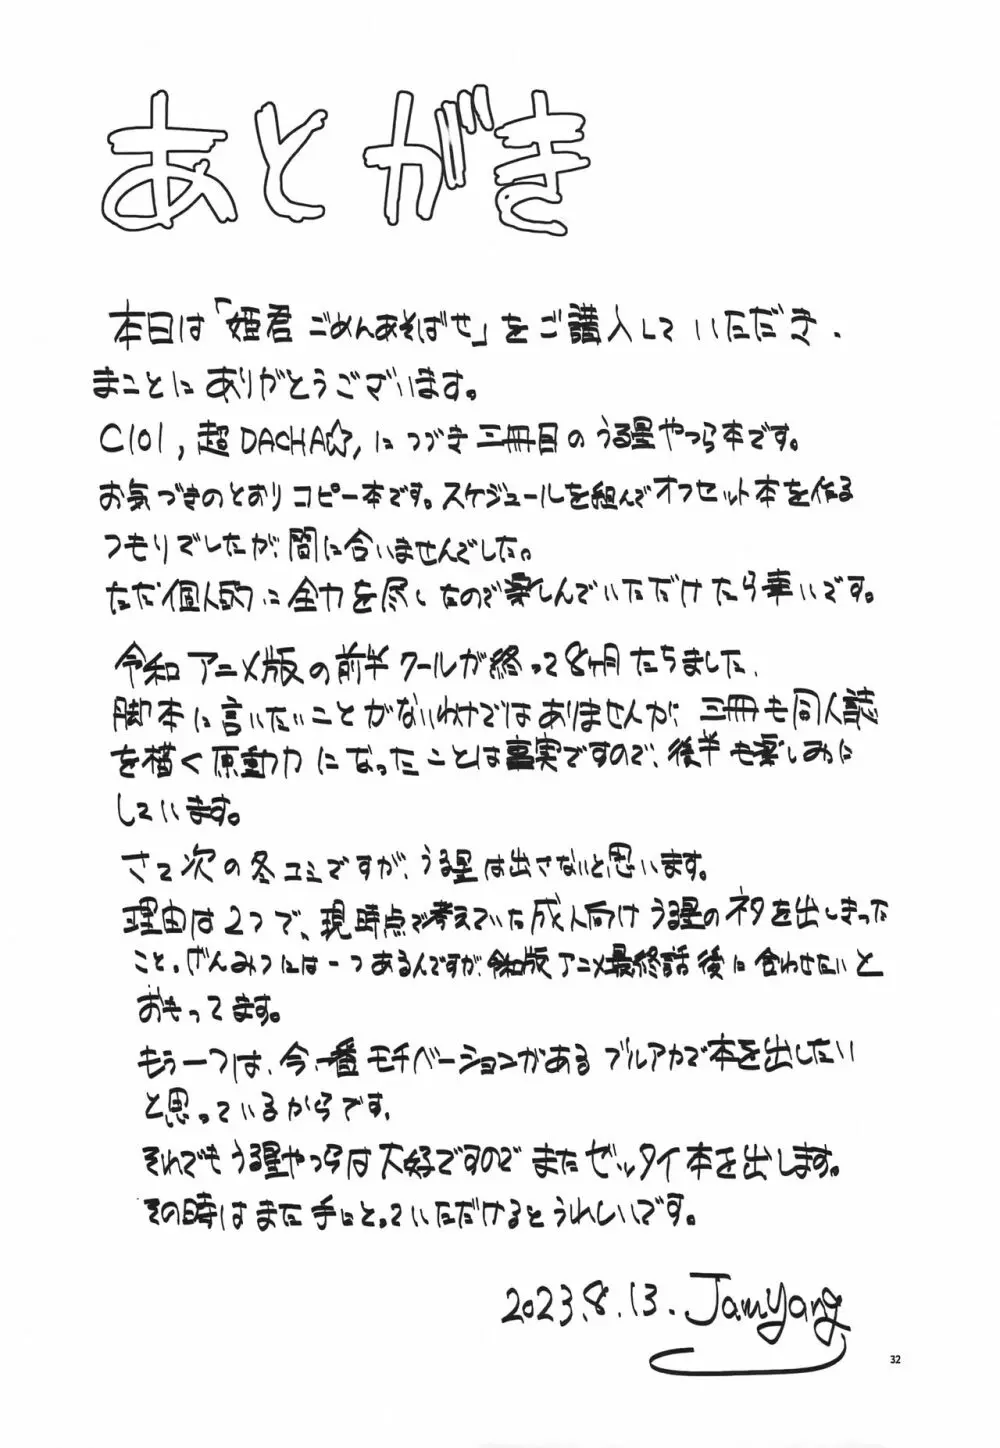 あとがき
本日は「姫君ごめんあそばせ」をご購入していただき、
まことにありがとうございます。
C101,超DACHA☆,につづき三冊目のうる星やつら本です。
お気づきのとおりコピー本です。スケジュールを組んでオフセット本を作る
つもりでしたが、間に合いませんでした。
ただ個人的に全力を尽くしたので楽しんでいただけたら幸いです。
令和アニメ版の前半クールが終って8ヶ月たちました、
脚本に言いたいことがないわけではありませんが、三冊も同人誌
を描く原動力になったことは事実ですので、後半も楽しみに
しています。
さて次の冬コミですが、うる星は出さないと思います。
理由は2つで、現時点で考えていた成人向けうる星のネタを出しきった
こと。げんみつには一つあるんですが、令和版アニメ最終話後に合わせたいと
おもってます。
もう一つは、今一番モチベーションがあるブルアカで本を出したい
と思っているからです。
それでもうる星やつらは大好ですのでまたゼッタイ本を出します。
その時はまた手にとっていただけるとうれしいです。
2023.8.13. Jamyang
32